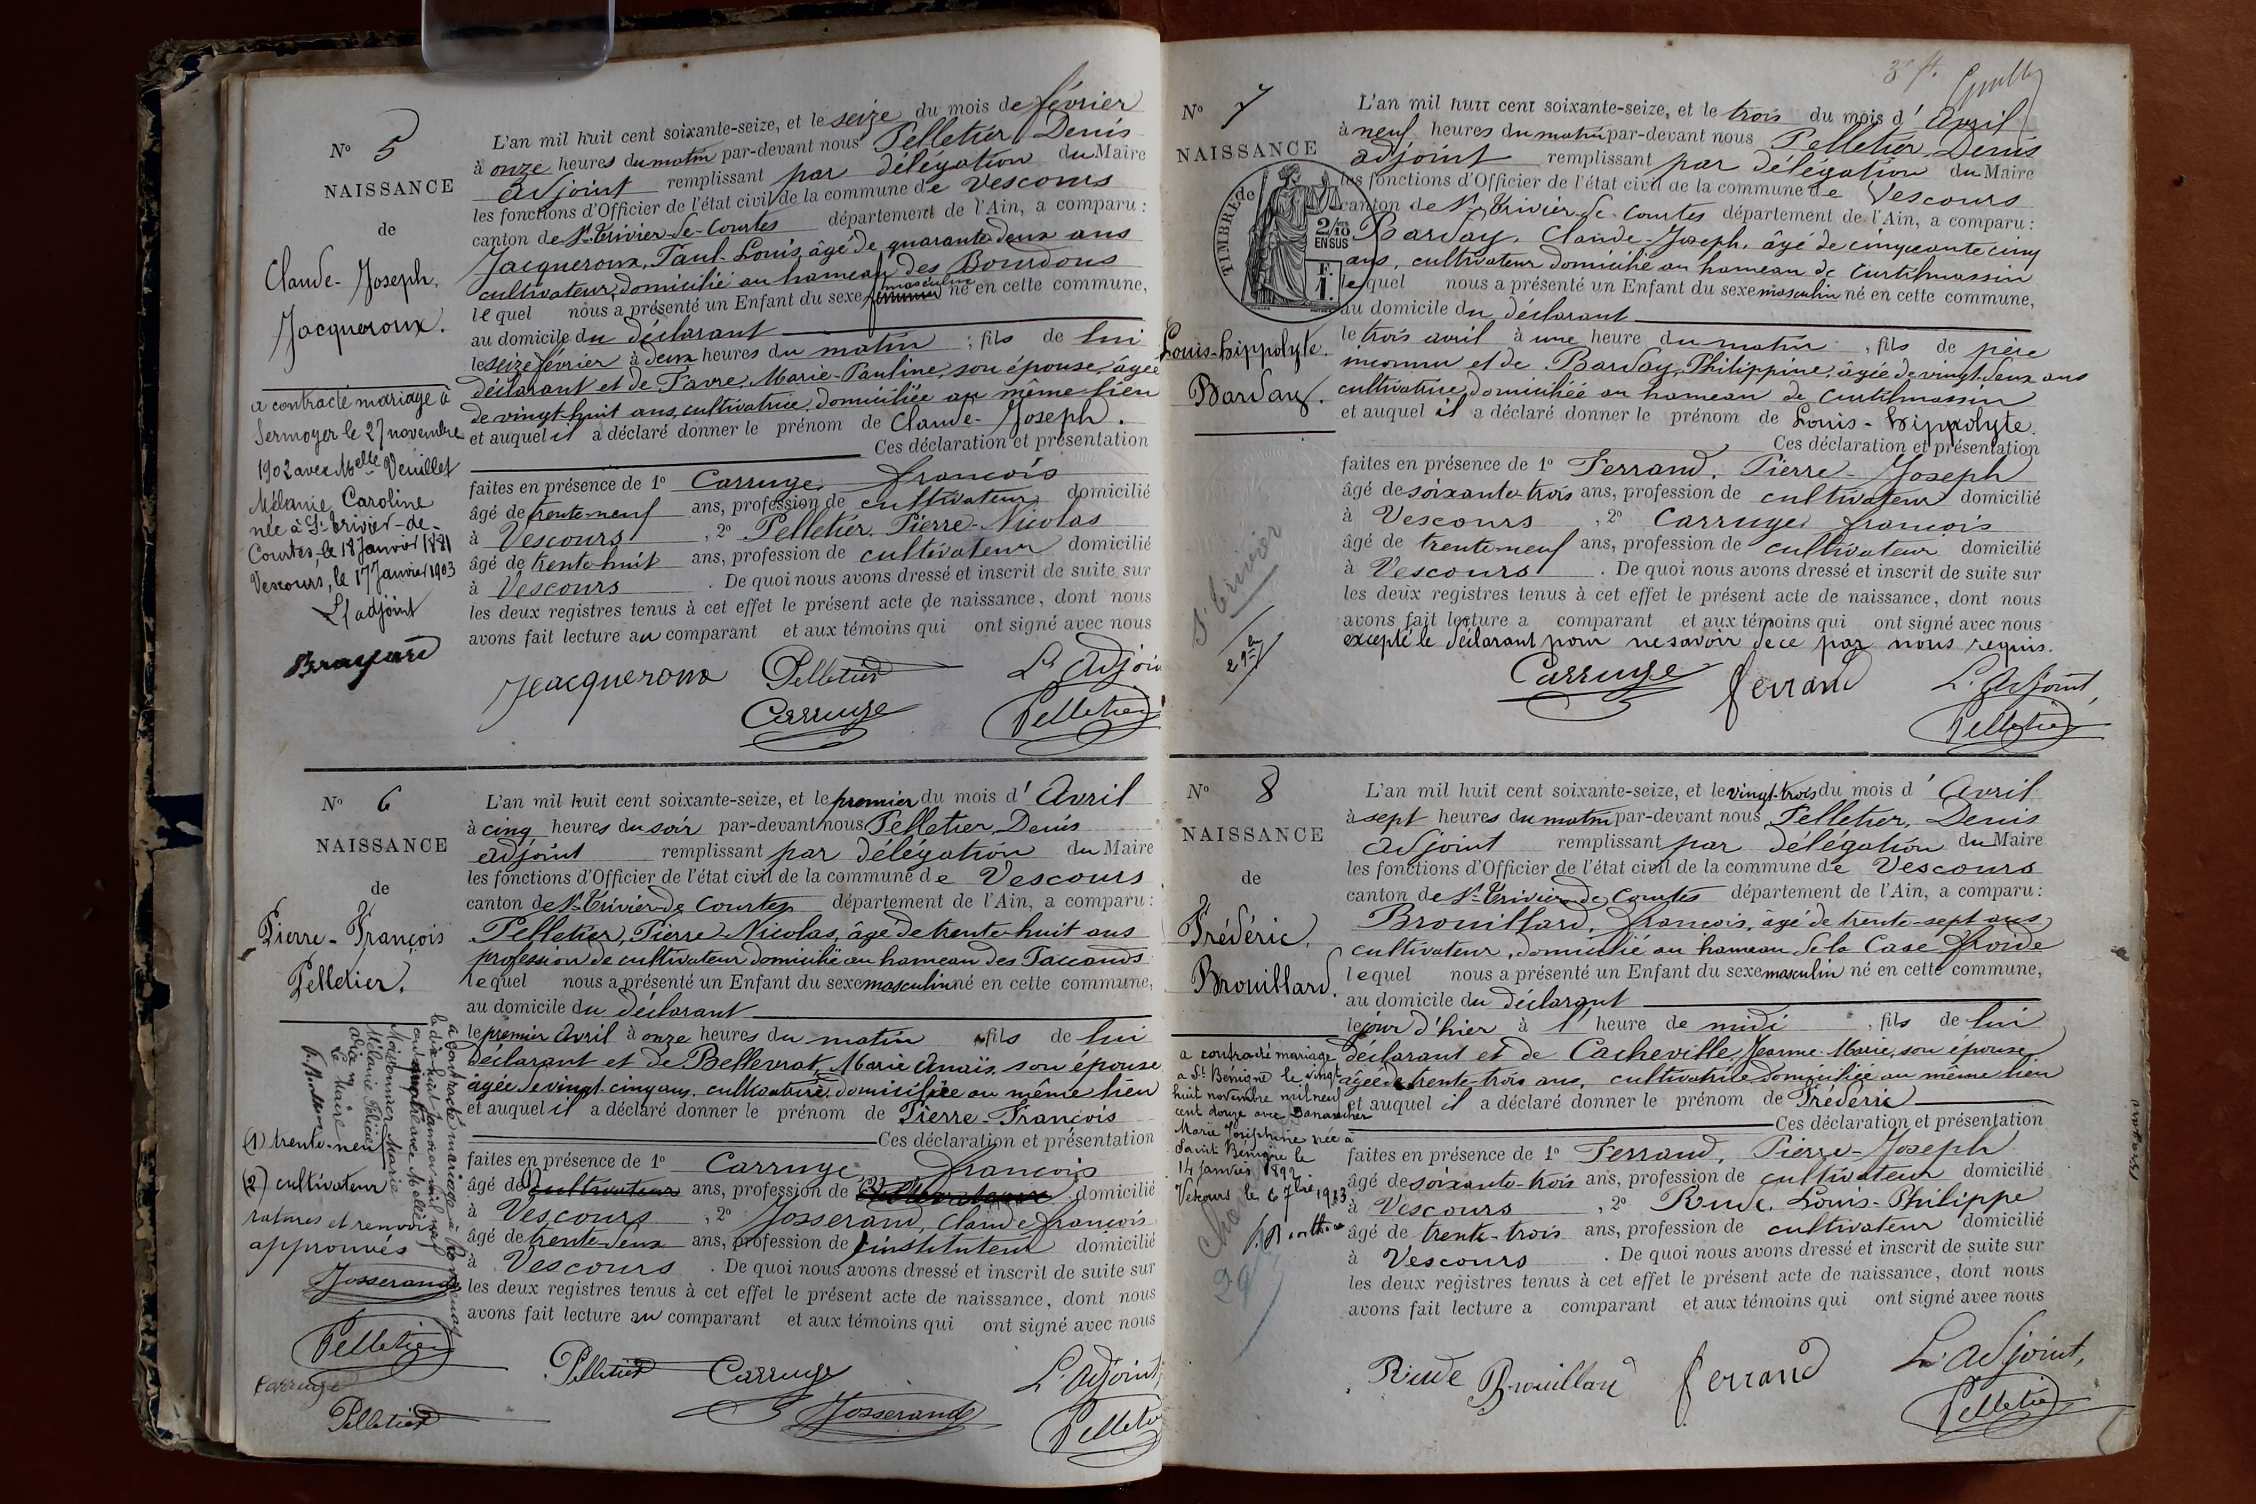 N° 5
NAISSANCE
de
Claude-Joseph.
Jacqueroux.
a contracté mariage à
Sermoyer le 27 novembre
1902 avec Melle Veuillet
Mélanie Caroline
née à St Trivier-de-
Courtes, le 18 Janvier 1881
Vescours, le 17 Janvier 1903
L'adjoint
Brayard
L'an mil huit cent soixante-seize, et le seize du mois de février
à onze heures du matin par-devant nous Pelletier Denis
adjoint remplissant par délégation du Maire
les fonctions d'Officier de l'état civil de la commune de Vescours
canton de St Trivier-de-Courtes département de l'Ain, a comparu :
Jacqueroux, Paul-Louis, âgé de quarante deux ans
cultivateur, domicilié au hameau des Bourdons
lequel nous a présenté un Enfant du sexe masculin né en cette commune,
au domicile du déclarant
le seize février à deux heures du matin ; fils de lui
déclarant et de Favre, Marie-Pauline, son épouse, âgée
de vingt-huit ans, cultivatrice, domiciliée au même lieu
et auquel il a déclaré donner le prénom de Claude-Joseph.
Ces déclaration et présentation
faites en présence de 1° Carruge, françois
âgé de trente-neuf ans, profession de cultivateur domicilié
à Vescours , 2° Pelletier, Pierre-Nicolas
âgé de trente-huit ans, profession de cultivateur domicilié
à Vescours . De quoi nous avons dressé et inscrit de suite sur
les deux registres tenus à cet effet le présent acte de naissance, dont nous
avons fait lecture au comparant et aux témoins qui ont signé avec nous
Jacqueroux Pelletier L'adjoin
Carruge Pelletier
N° 6
NAISSANCE
de
Pierre-François
Pelletier.
a contracté mariage à
le dix-huit Janvier mil neuf
cent avec Melle
Moissonnier Marie
Mélanie Félicie
Le Maire
(1) trente-neuf
(2) cultivateur
ratures et renvois
approuvés
Josserand
Pelletier
Carruge
Pelletier
L'an mil huit cent soixante-seize, et le premier du mois d'Avril
à cinq heures du soir par-devant nous Pelletier, Denis
adjoint remplissant par délégation du Maire
les fonctions d'Officier de l'état civil de la commune de Vescours
canton de St Trivier de Courtes département de l'Ain, a comparu :
Pelletier, Pierre-Nicolas, âgé de trente-huit ans
profession de cultivateur domicilié au hameau des Taccands
lequel nous a présenté un Enfant du sexe masculin né en cette commune,
au domicile du déclarant
le premier Avril à onze heures du matin , fils de lui
déclarant et de Bellevrat, Marie Anaïs, son épouse
âgée de vingt-cinq ans, cultivatrice, domiciliée au même lieu
et auquel il a déclaré donner le prénom de Pierre-François
Ces déclaration et présentation
faites en présence de 1° Carruge françois
âgé de (1) cultivateur ans, profession de (2) domicilié
à Vescours , 2° Josserand, Claude françois
âgé de trente-deux ans, profession de instituteur domicilié
à Vescours . De quoi nous avons dressé et inscrit de suite sur
les deux registres tenus à cet effet le présent acte de naissance, dont nous
avons fait lecture au comparant et aux témoins qui ont signé avec nous
Pelletier Carruge L'adjoint,
Josserand Pelleti
N° 7
NAISSANCE
TIMBRE de
2/10 EN SUS
F. 1.
Louis-hippolyte.
Barday.
St Trivier
L'an mil huit cent soixante-seize, et le trois du mois d'Avril
à neuf heures du matin par-devant nous Pelletier, Denis
adjoint remplissant par délégation du Maire
les fonctions d'Officier de l'état civil de la commune de Vescours
canton de St Trivier-de-Courtes département de l'Ain, a comparu :
Barday, Claude-Joseph, âgé de cinquante cinq
ans, cultivateur domicilié au hameau de Curtilmassin
lequel nous a présenté un Enfant du sexe masculin né en cette commune,
au domicile du déclarant
le trois avril à une heure du matin , fils de père
inconnu et de Barday, Philippine, âgée de vingt-deux ans
cultivatrice, domiciliée au hameau de Curtilmassin
et auquel il a déclaré donner le prénom de Louis-hippolyte.
Ces déclaration et présentation
faites en présence de 1° Ferrand, Pierre-Joseph
âgé de soixante-trois ans, profession de cultivateur domicilié
à Vescours , 2° Carruge, françois
âgé de trente-neuf ans, profession de cultivateur domicilié
à Vescours . De quoi nous avons dressé et inscrit de suite sur
les deux registres tenus à cet effet le présent acte de naissance, dont nous
avons fait lecture au comparant et aux témoins qui ont signé avec nous
excepté le déclarant pour ne savoir de ce par nous requis.
Carruge ferrand L'adjoint,
Pelletier
N° 8
NAISSANCE
de
Frédéric,
Brouillard.
a contracté mariage
à St Bénigne le vingt
huit novembre mil neuf
cent douze avec Dananchier
Marie Joséphine née à
Saint Bénigne le
14 janvier 1892
Vescours le 6 7bre 1913
L'an mil huit cent soixante-seize, et le vingt-trois du mois d'Avril
à sept heures du matin par-devant nous Pelletier, Denis
adjoint remplissant par délégation du Maire
les fonctions d'Officier de l'état civil de la commune de Vescours
canton de St Trivier de Courtes département de l'Ain, a comparu :
Brouillard, françois, âgé de trente-sept ans
cultivateur, domicilié au hameau de la Case froide
lequel nous a présenté un Enfant du sexe masculin né en cette commune,
au domicile du déclarant
le jour d'hier à l'heure de midi , fils de lui
déclarant et de Cacheville, Jeanne-Marie, son épouse
âgée de trente-trois ans, cultivatrice domiciliée au même lieu
et auquel il a déclaré donner le prénom de Frédéric
Ces déclaration et présentation
faites en présence de 1° Ferrand, Pierre-Joseph
âgé de soixante-trois ans, profession de cultivateur domicilié
à Vescours , 2° Rude, Louis-Philippe
âgé de trente-trois ans, profession de cultivateur domicilié
à Vescours . De quoi nous avons dressé et inscrit de suite sur
les deux registres tenus à cet effet le présent acte de naissance, dont nous
avons fait lecture a comparant et aux témoins qui ont signé avec nous
Rude Brouillard ferrand L'adjoint,
Pelletier